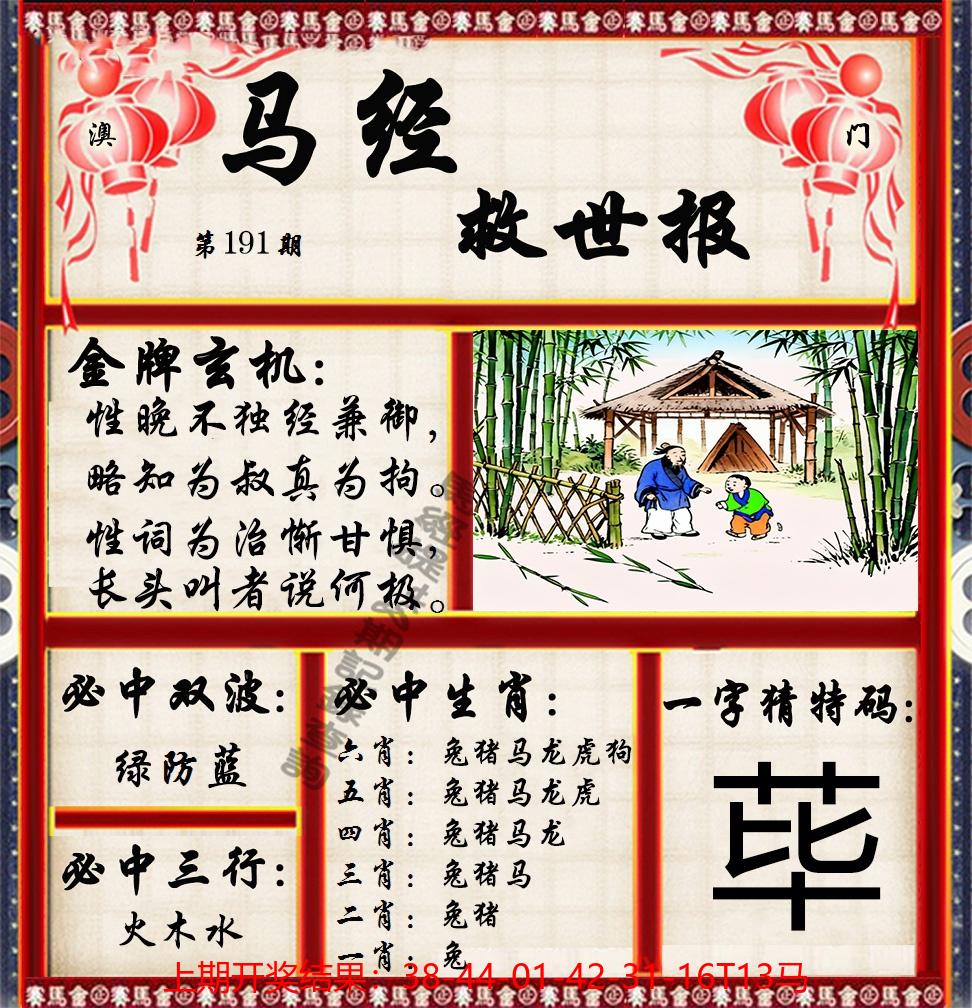 澳
门
马经
救世报
第191期
金牌玄机：
性晚不独经兼御，
略知为叔真为拘。
性词为治惭甘惧，
长头叫者说何极。
必中双波：
绿防蓝
必中三行：
火木水
必中生肖：
六肖：兔猪马龙虎狗
五肖：兔猪马龙虎
四肖：兔猪马龙
三肖：兔猪马
二肖：兔猪
一肖：兔
一字猜特码：
荜
上期开奖结果：38-44-01-42-31-16T13马